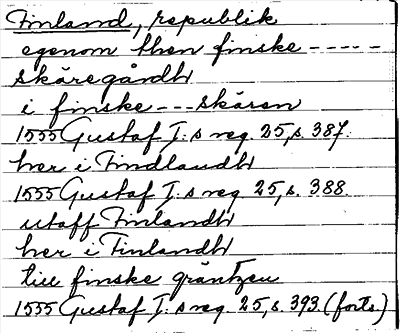 Finland, republik
egenom then finske -----
skäregårdh
i finske --- skären
1555 Gustaf I:s reg. 25, s. 387.
her i Findlandh
1555 Gustaf I:s reg. 25, s. 388.
utaff Finlandh
her i Finlandh
till finske gräntzen
1555 Gustaf I:s reg. 25, s. 393. (forts.)